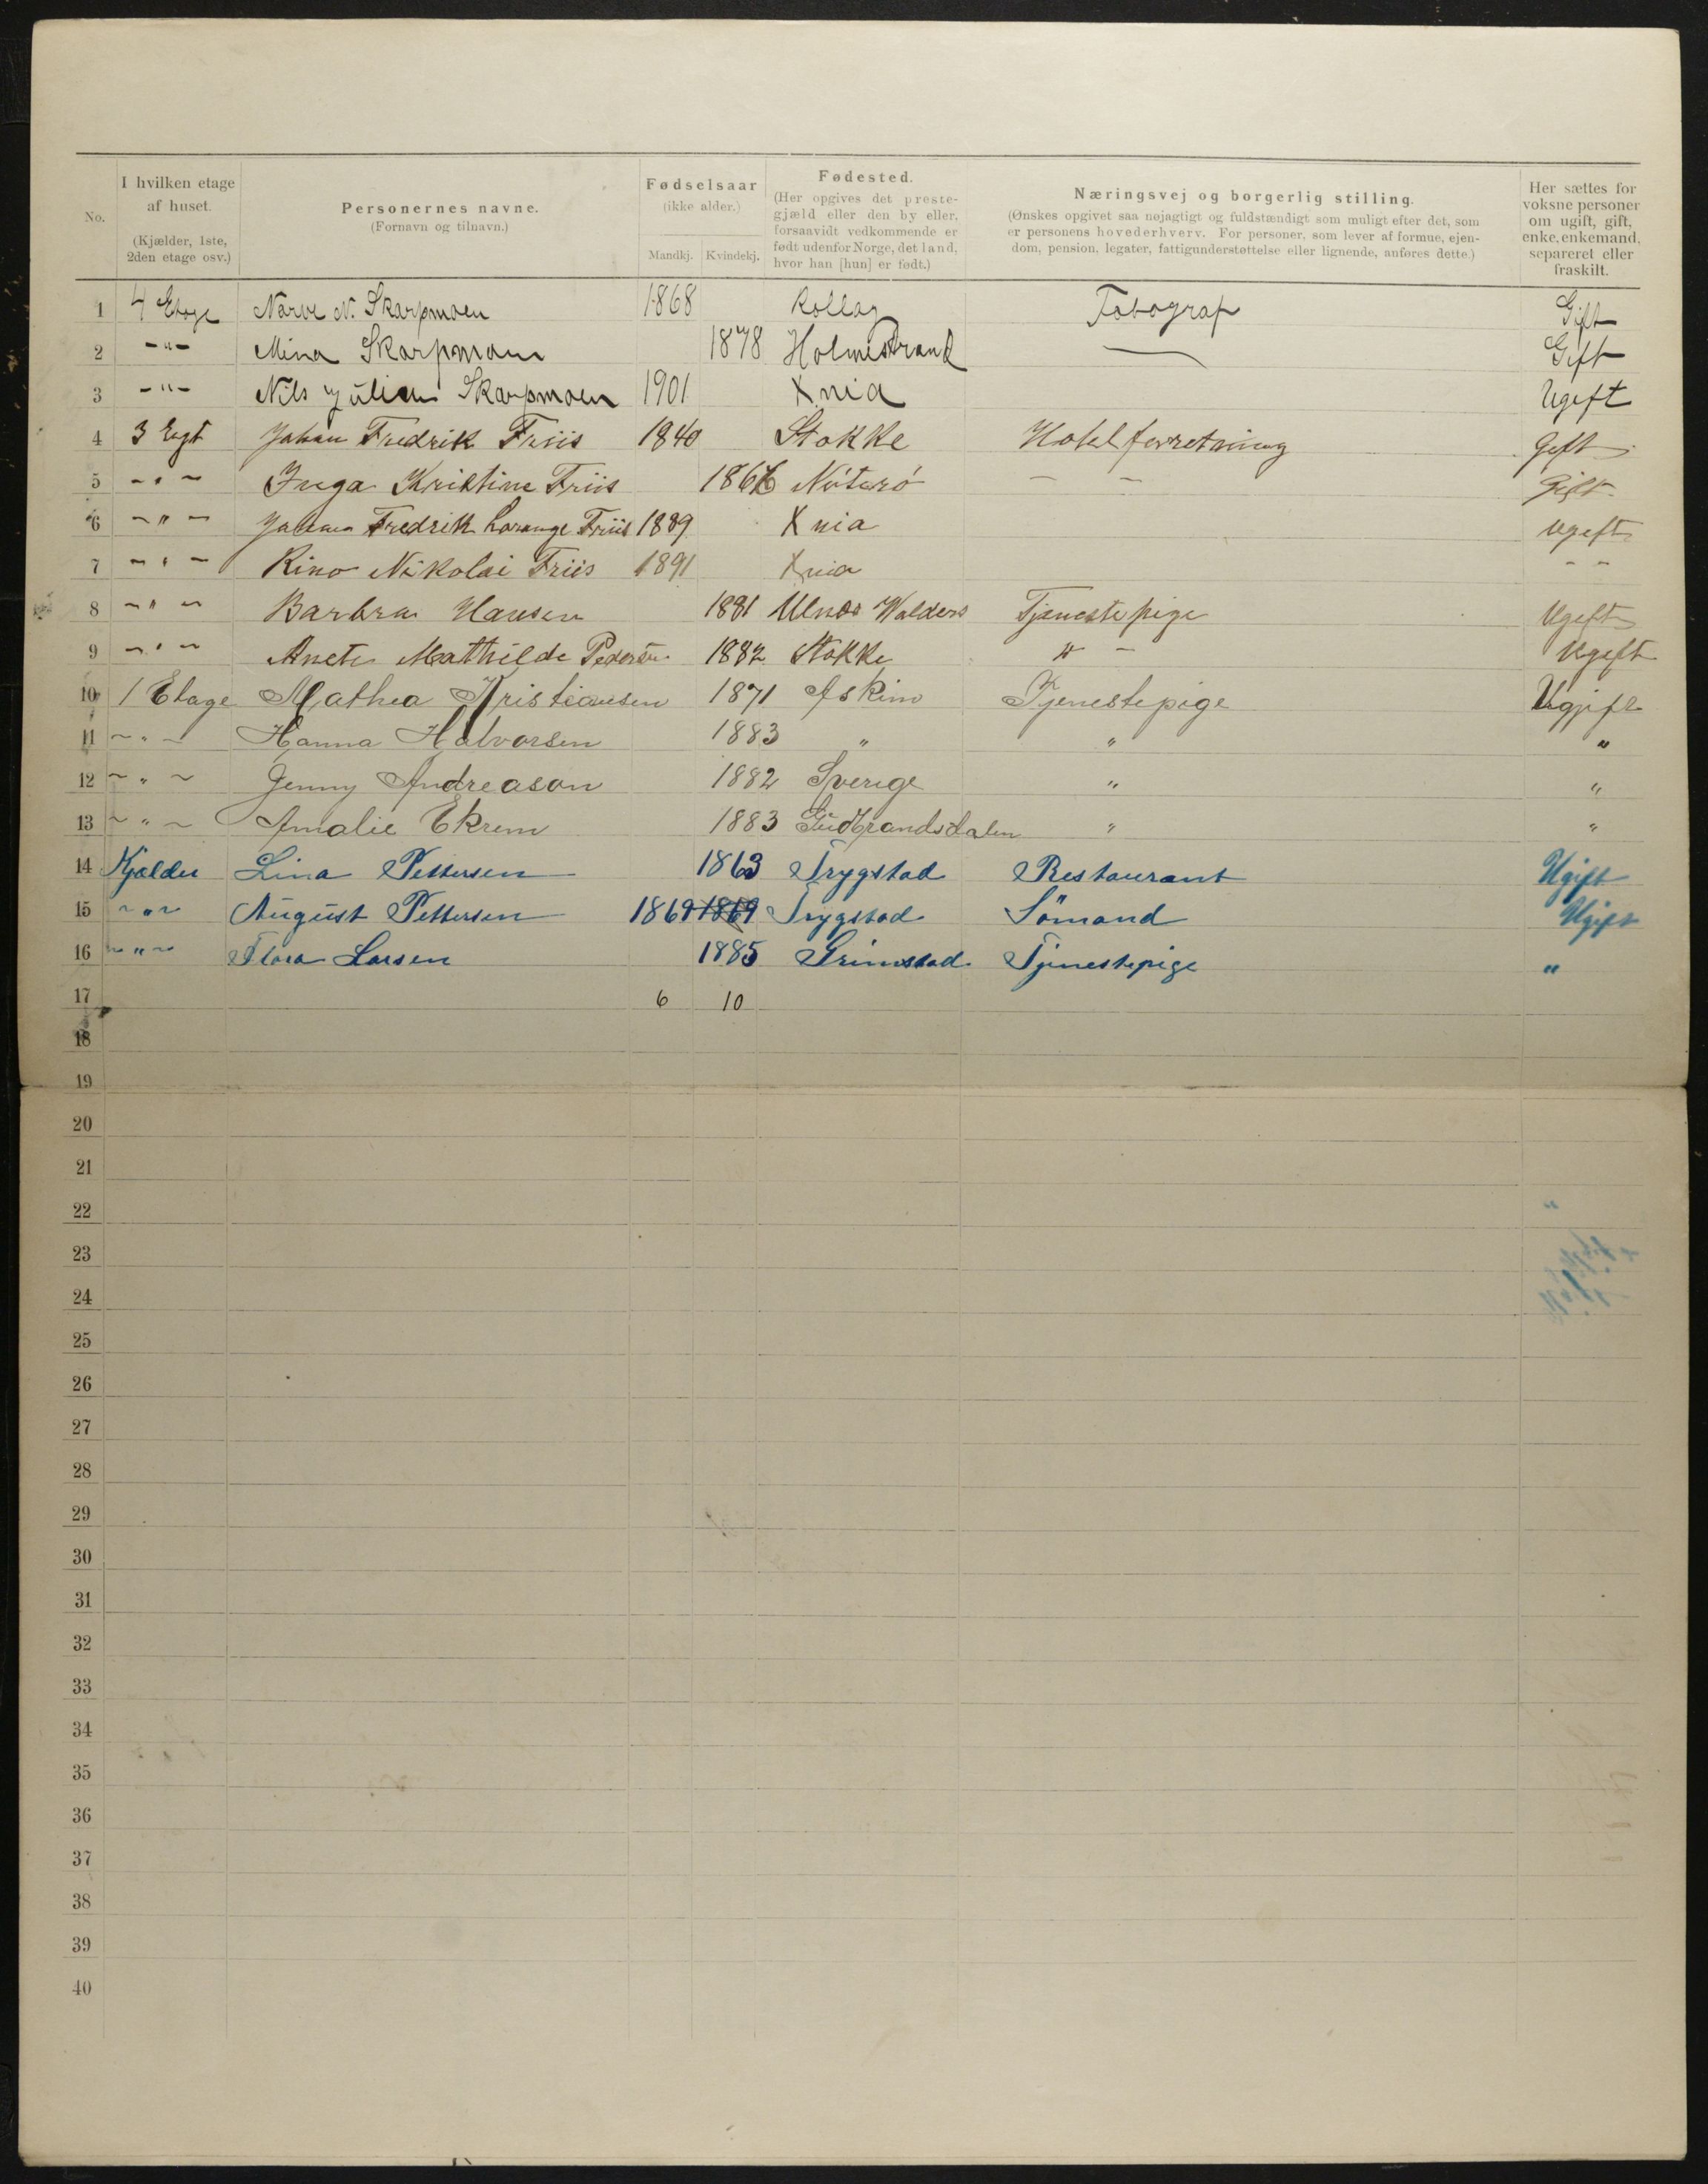 No. I hvilken etage af huset. (Kjælder, 1ste, 2den etage osv.) Personernes navne. (Fornavn og tilnavn.) Fødselsaar (ikke alder.) Mandkj. Kvindekj. Fødested. (Her opgives det prestegjæld eller den by eller, forsaavidt vedkommende er født udenfor Norge, det land, hvor han [hun] er født.) Næringsvej og borgerlig stilling. (Ønskes opgivet saa nøjagtigt og fuldstændigt som muligt efter det, som er personens hovederhverv. For personer, som lever af formue, ejendom, pension, legater, fattigunderstøttelse eller lignende, anføres dette.) Her sættes for voksne personer om ugift, gift, enke, enkemand, separeret eller fraskilt.
1 4 Etage Narve N. Skarpmoen 1868 Rollag Fotograf Gift
2 -"- Mina Skarpmoen 1878 Holmestrand — Gift
3 -"- Nils Julian Skarpmoen 1901 Xnia Ugift
4 3 Etgt Johan Fredrik Friis 1840 Stokke Hotelforretning Gift
5 -"- Inga Kristine Friis Nøterø - - Gift
6 -"- Johan Fredrik Lorange Friis 1889 Xnia Ugift
7 -"- Rino Nikolai Friis 1891 Xnia - -
8 -"- Barbra Hansen 1881 Ulnes Walders Tjenestepige Ugift
9 -"- Anete Mathilde Pedersen 1882 Stokke " - Ugift
10 1 Etage Mathea Kristiansen 1871 Askim Tjenestepige Ugift
11 ~"~ Hanna Halvorsen 1883 " " "
12 ~"~ Jenny Andreason 1882 Sverige " "
13 ~"~ Amalie Ekrem 1883 Gudbrandsdalen " "
14 Kjælder Lina Pettersen 1863 Trygstad Restaurant Ugift
15 ~"~ August Pettersen 1869 1869 Trygstad Sömand Ugift
16 ~"~ Flora Larsen 1885 Grimstad Tjenestepige "
17 6 10
18
19
20
21
22
23
24
25
26
27
28
29
30
31
32
33
34
35
36
37
38
39
40